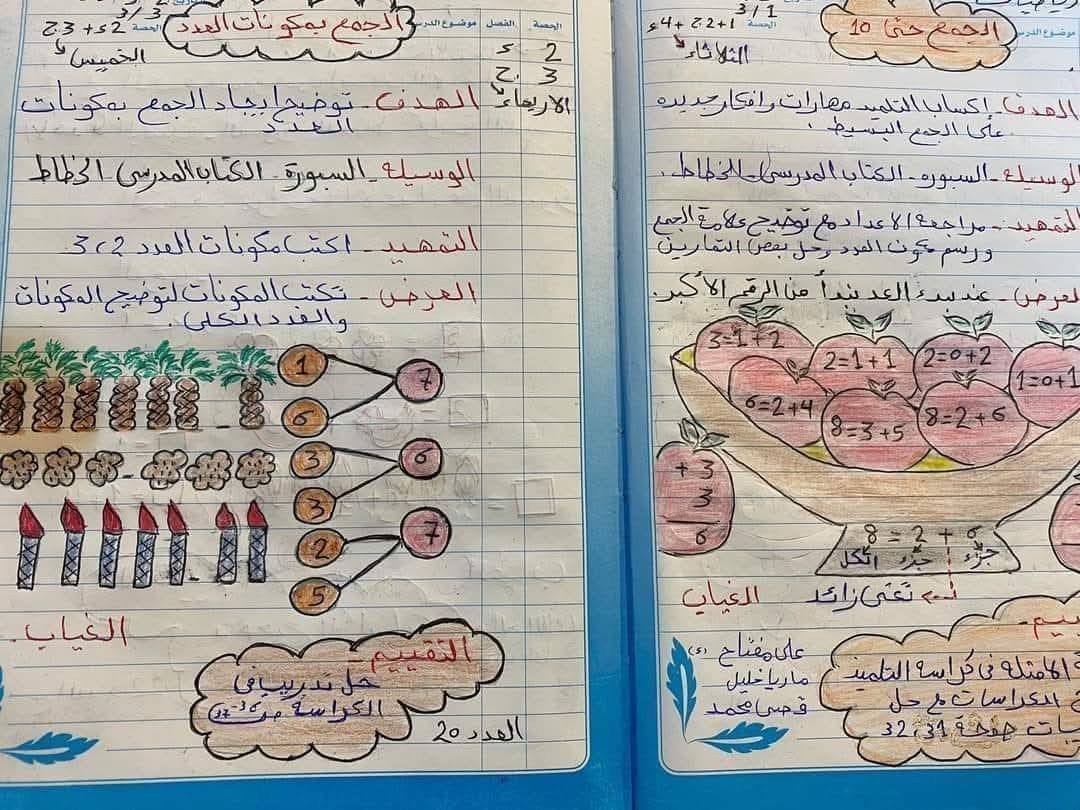 3/1
الحصة 1+2.ج +4.ء
الثلاثاء
موضوع الدرس
الجمع حتى 10
الهدف - إكساب التلميذ مهارات وأفكار جديده
على الجمع البسيط.
الوسيلة - السبوره - الكتاب المدرسى - الخطاط.
التمهيد - مراجعة الاعداد مع توضيح علامة الجمع
ورسم مكون العدد وحل بعض التمارين
العرض - عند بدء العد نبدأ من الرقم الأكبر.
3=1+2
2=1+1
2=0+2
1=0+1
6=2+4
8=3+5
8=2+6
+ 3
3
6
8 = 2 + 6
الكل جزء جزء
تعنى زائد
الغياب
على مفتاح (ء)
ماريا خليل
قصى محمد
الامثلة فى كراسة التلميذ
الكراسات مع حل
صفحة 31، 32
3/3
الحصة 2ء + 3.ج
الخميس
موضوع الدرس
الجمع بمكونات العدد
الحصة الفصل
2 ء
3 ج.
الاربعاء
الهدف - توضيح إيجاد الجمع بمكونات
العدد
الوسيلة - السبورة - الكتاب المدرسى الخطاط
التمهيد - اكتب مكونات العدد 2، 3
العرض - تكتب المكونات لتوضيح المكونات
والعدد الكلى.
1
7
6
3
6
3
2
7
5
الغياب.
التقييم -
حل تدريب فى
الكراسة ص
العدد 20